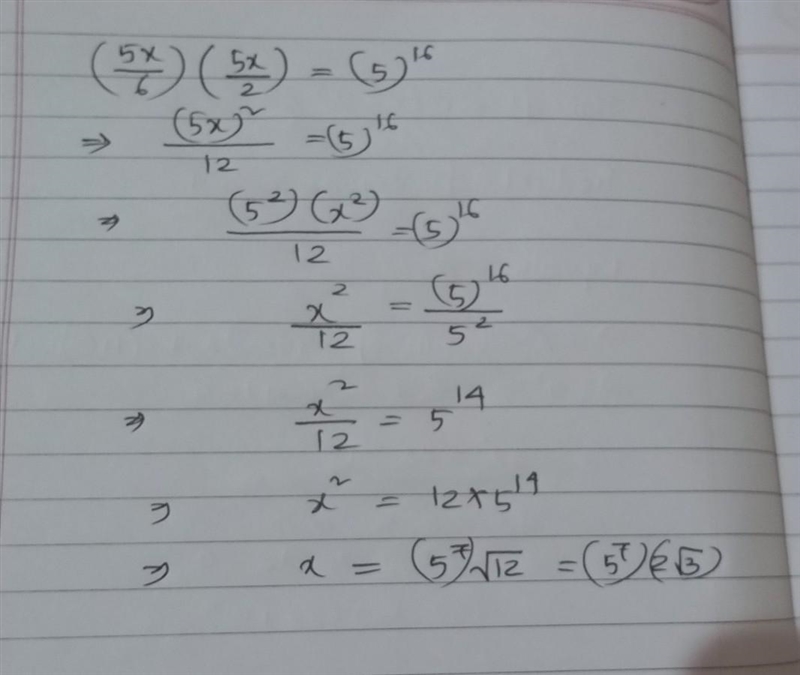 (5x/6) (5x/2) = (5)^16
⇒ (5x)^2/12 = (5)^16
⇒ (5^2) (x^2)/12 = (5)^16
⇒ x^2/12 = (5)^16/5^2
⇒ x^2/12 = 5^14
⇒ x^2 = 12 × 5^14
⇒ x = (5^7)√12 = (5^7)(2√3)